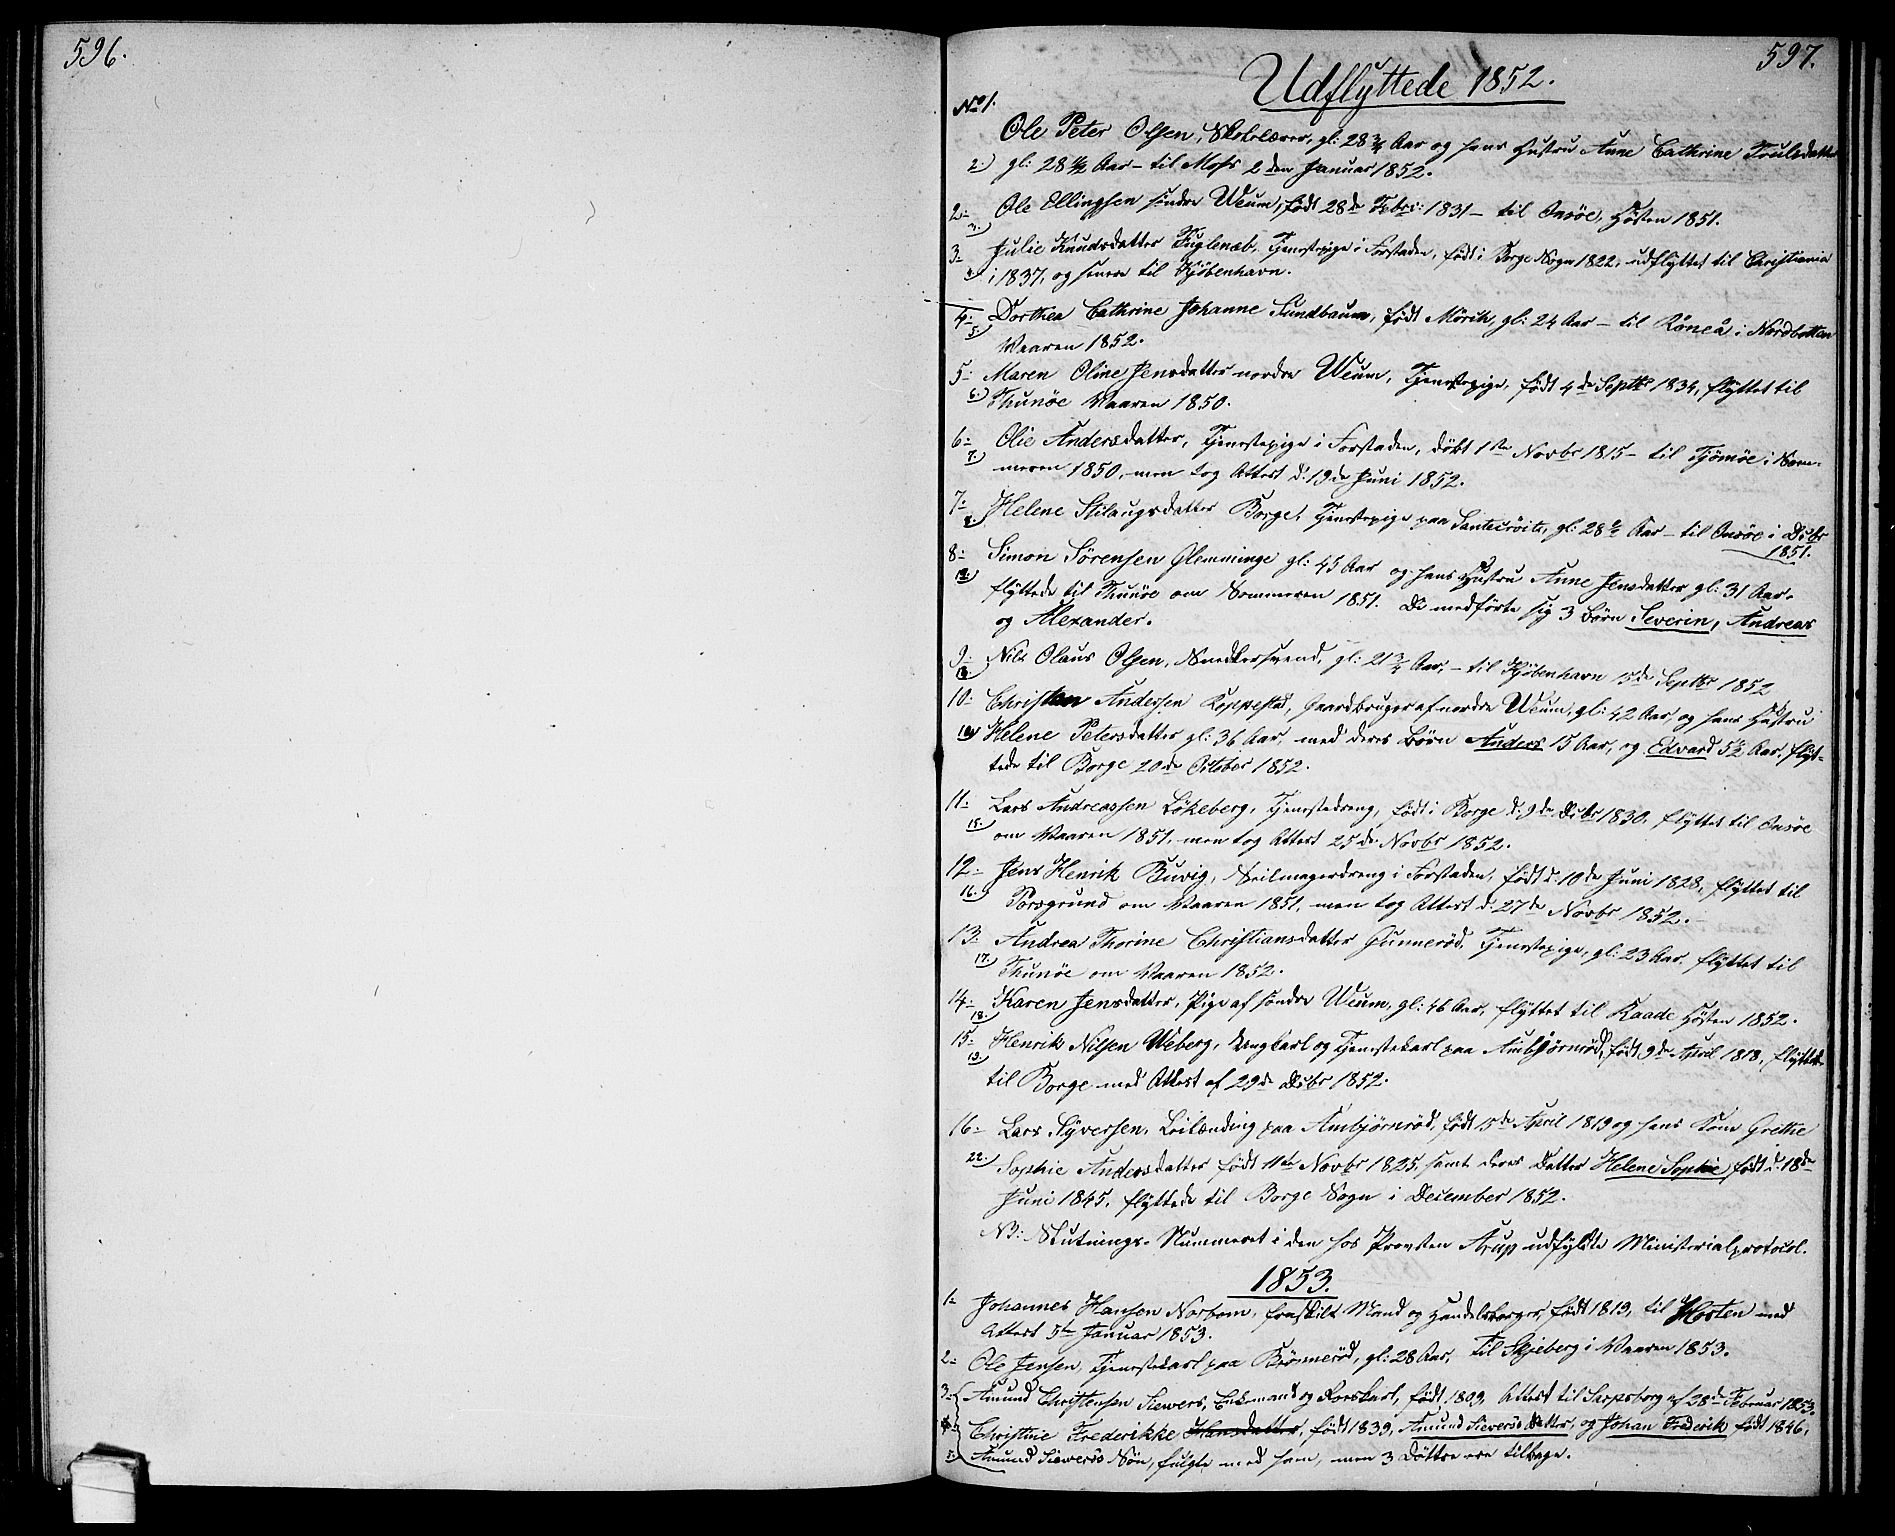 596.
597.
Udflyttede 1852.
No 1.
Ole Peter Olsen, Skolelærer, gl: 28 3/4 Aar og hans Hustru Anne Cathrine Trulsdatter
2.) gl: 28 1/2 Aar – til Moss 2den Januar 1852.
2- Ole Ellingsen søndre Weum, født 28de Febr: 1831 – til Onsöe, Hösten 1851.
3.)
3- Julie Knudsdatter Fuglenæb, Tjenestepige i Forstaden, født i Borge Sogn 1822, udflyttet til Christiania
4.) i 1837, og senere til Kjöbenhavn.
4- Dorthea Cathrine Johanne Sundbaum, født Mörck, gl: 24 Aar – til Råneå i Nordbotten
5.) Vaaren 1852.
5- Maren Oline Jensdatter nordre Weum, Tjenestepige, født 4de Septbr 1834, flyttet til
6.) Thunöe Vaaren 1850.
6- Olie Andersdatter, Tjenestepige i Forstaden, döbt 1ste Novbr 1815 – til Tjömöe i Som-
7.) meren 1850, men tog Attest d: 19de Juni 1852.
7- Helene Stilaugsdatter Borge, Tjenestepige paa gl: 28 Aar – til Onsöe i Decbr
8.) 1851.
8- Simon Sörensen Glemminge gl: 45 Aar og hans Hustru Anne Jensdatter gl: 31 Aar,
12.) flyttede til Thunöe om Sommeren 1851. De medförte sig 3 Börn Severin, Andreas
og Alexander.
9- Nils Olaus Olsen, Snedkersvend, gl: 21 3/4 Aar, – til Kjöbenhavn 15de Septbr 1852
13.)
10- Christen Andersen Koppestad, Gaardbruger af nordre Weum, gl: 42 Aar, og hans Hustru
Helene Petersdatter gl: 36 Aar, med deres Börn Anders 15 Aar, og Edvard 5 1/2 Aar, flyt-
tede til Borge 20de October 1852.
11- Lars Andreassen Lökeberg, Tjenestedreng, født i Borge d: 9de Decbr 1830, flyttet til Onsöe
15.) om Vaaren 1851, men tog Attest 25de Novbr 1852.
12- Jens Henrik Buvig, Seilmagerdreng i Forstaden, født d: 10de Juni 1828, flyttet til
16.) Porsgrund om Vaaren 1851, men tog Attest d: 27de Novbr 1852.
13- Andrea Thorine Christiansdatter Gunneröd, Tjenestepige, gl: 23 Aar, flyttet til
17.) Thunöe om Vaaren 1852.
14- Karen Jensdatter, Pige af söndre Weum, gl: 46 Aar, flyttet til Raade Hösten 1852.
18.)
15- Henrik Nilsen Weberg, Ungkarl og Tjenestekarl paa Ambjörnröd, født 9de April 1818, flyttede
19.) til Borge med Attest af 29de Decbr 1852.
16- Lars Syversen, Leilænding paa Ambjörnröd, født 15de April 1819 og hans Kone Grethe
22.) Sophie Andersdatter født 11te Novbr 1825, samt deres Datter Helene Sophie født d: 18de
Juni 1845, flyttede til Borge Sogn i December 1852.
NB: Slutnings-Nummeret i den hos Provsten Arup udfyldte Ministerialprotocol.
1853.
1- Johannes Hansen Norbom, fraskilt Mand og Handelsborger, født 1819, til Horten med
Attest 5te Januar 1853.
2- Ole Jensen, Tjenestekarl paa Brönneröd, gl: 28 Aar, til Skjeberg i Vaaren 1853.
3- Amund Christensen Siewers, Enkemand og Roerskarl, født 1809, Attest til Sarpsborg af 28de Februar 1853.
4- Christine Frederikke Hansdatter, født 1839, Amund Siewers's Datter, og Johan Frederik født 1846,
5. Amund Siewers's Sön, fulgte med ham, men 3 Döttre ere tilbage.